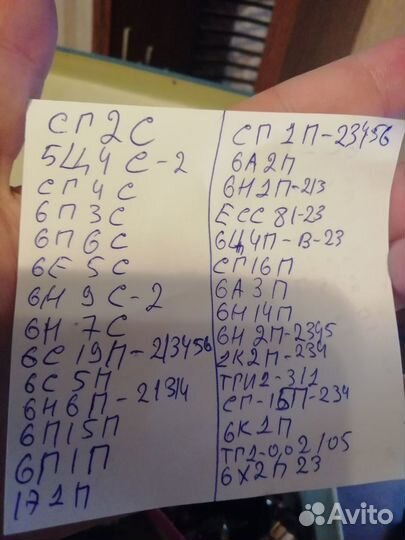 СП2С
5Ц4С-2
СП4С
6П3С
6П6С
6Е5С
6Н9С-2
6Н7С
6С19П-2/3456
6С5П
6Н6П-2134
6П15П
6П1П
171П
СП1П-23456
6А2П
6Н1П-2/3
ЕСС81-23
6Ц4П-В-23
СП16П
6А3П
6Н14П
6Н2П-2345
1К2П-234
ТГИ2-3/2
6К1П
ТГ2-0,02/05
6Х2П 23
Avito